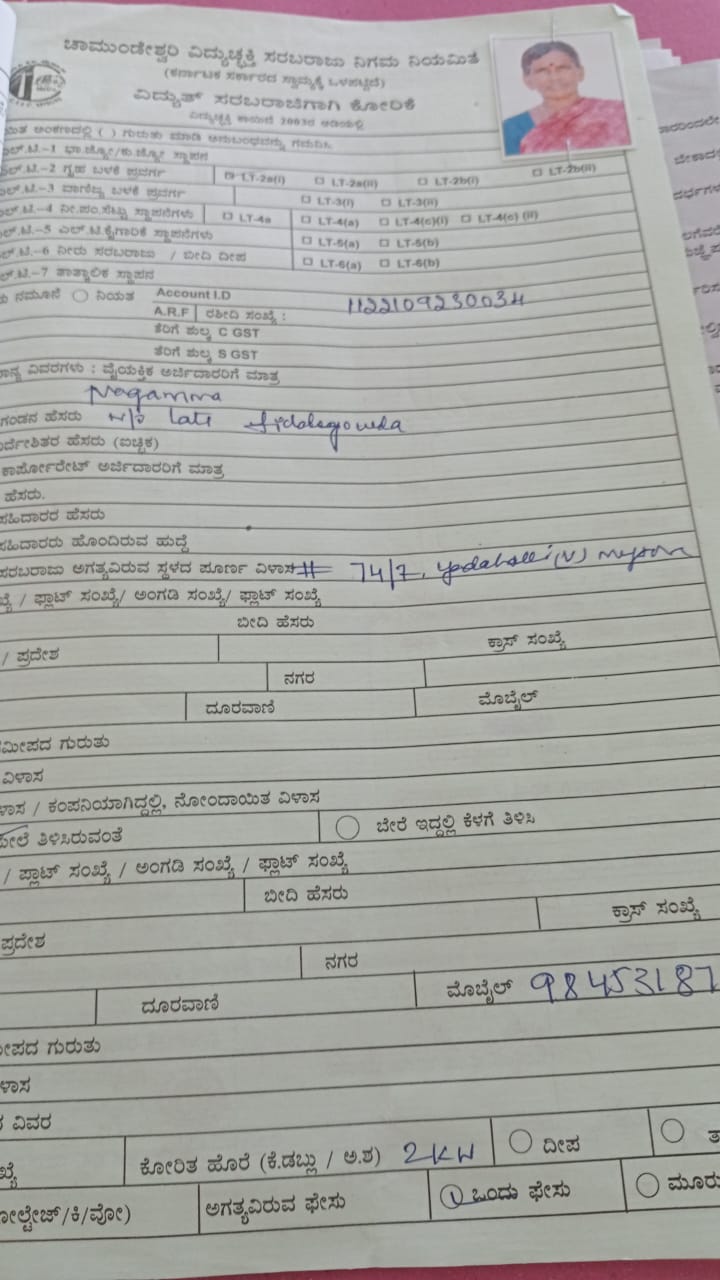 ಚಾಮುಂಡೇಶ್ವರಿ ವಿದ್ಯುಚ್ಛಕ್ತಿ ಸರಬರಾಜು ನಿಗಮ ನಿಯಮಿತ
(ಕರ್ನಾಟಕ ಸರ್ಕಾರದ ಸ್ವಾಮ್ಯಕ್ಕೆ ಒಳಪಟ್ಟಿದೆ)
ವಿದ್ಯುತ್ ಸರಬರಾಜಿಗಾಗಿ ಕೋರಿಕೆ
ವಿದ್ಯುಚ್ಛಕ್ತಿ ಕಾಯಿದೆ 2003ರ ಅಡಿಯಲ್ಲಿ
ಅಂಕಣದಲ್ಲಿ ( ) ಗುರುತು ಮಾಡಿ
ಎಲ್.ಟಿ.-1 ಭಾ.ಜ್ಯೋ/ಕು.ಜ್ಯೋ ಸ್ಥಾಪನ
ಎಲ್.ಟಿ.-2 ಗೃಹ ಬಳಕೆ ಪ್ರವರ್ಗ LT-2a(i) LT-2a(ii) LT-2b(i) LT-2b(ii)
ಎಲ್.ಟಿ.-3 ವಾಣಿಜ್ಯ ಬಳಕೆ ಪ್ರವರ್ಗ LT-3(i) LT-3(ii)
ಎಲ್.ಟಿ.-4 ನೀ.ಪಂ.ಸೆಟ್ಟು ಸ್ಥಾಪನೆಗಳು LT-4a LT-4(a) LT-4(c)(i) LT-4(c) (ii)
ಎಲ್.ಟಿ.-5 ಎಲ್.ಟಿ.ಕೈಗಾರಿಕೆ ಸ್ಥಾಪನೆಗಳು LT-5(a) LT-5(b)
ಎಲ್.ಟಿ.-6 ನೀರು ಸರಬರಾಜು / ಬೀದಿ ದೀಪ LT-6(a) LT-6(b)
ಎಲ್.ಟಿ.-7 ತಾತ್ಕಾಲಿಕ ಸ್ಥಾಪನ
ನಮೂನೆ ನಿಯತ Account I.D 1122109230034
A.R.F ರಶೀದಿ ಸಂಖ್ಯೆ :
ತೆರಿಗೆ ಶುಲ್ಕ C GST
ತೆರಿಗೆ ಶುಲ್ಕ S GST
ವಿವರಗಳು : ವೈಯಕ್ತಿಕ ಅರ್ಜಿದಾರರಿಗೆ ಮಾತ್ರ
Nagamma
ಗಂಡನ ಹೆಸರು w/o late
ಹೆಸರು (ಐಚ್ಛಿಕ)
ಕಾರ್ಪೋರೇಟ್ ಅರ್ಜಿದಾರರಿಗೆ ಮಾತ್ರ
ಹೆಸರು.
ಸಹಿದಾರರ ಹೆಸರು
ಸಹಿದಾರರು ಹೊಂದಿರುವ ಹುದ್ದೆ
ಸರಬರಾಜು ಅಗತ್ಯವಿರುವ ಸ್ಥಳದ ಪೂರ್ಣ ವಿಳಾಸ # 74/7, Yedahalli (V) Mysore
/ ಫ್ಲಾಟ್ ಸಂಖ್ಯೆ/ ಅಂಗಡಿ ಸಂಖ್ಯೆ/ ಫ್ಲಾಟ್ ಸಂಖ್ಯೆ
ಬೀದಿ ಹೆಸರು
/ ಪ್ರದೇಶ ಕ್ರಾಸ್ ಸಂಖ್ಯೆ
ನಗರ
ದೂರವಾಣಿ ಮೊಬೈಲ್
ಗುರುತು
ವಿಳಾಸ
/ ಕಂಪನಿಯಾಗಿದ್ದಲ್ಲಿ, ನೋಂದಾಯಿತ ವಿಳಾಸ
ಮೇಲೆ ತಿಳಿಸಿರುವಂತೆ ಬೇರೆ ಇದ್ದಲ್ಲಿ ಕೆಳಗೆ ತಿಳಿಸಿ
/ ಪ್ಲಾಟ್ ಸಂಖ್ಯೆ / ಅಂಗಡಿ ಸಂಖ್ಯೆ / ಫ್ಲಾಟ್ ಸಂಖ್ಯೆ
ಬೀದಿ ಹೆಸರು
ಪ್ರದೇಶ ಕ್ರಾಸ್ ಸಂಖ್ಯೆ
ನಗರ
ದೂರವಾಣಿ ಮೊಬೈಲ್ 98453187
ಗುರುತು
ವಿವರ
ಕೋರಿತ ಹೊರೆ (ಕೆ.ಡಬ್ಲು / ಅ.ಶ) 2KW ದೀಪ
ವೋಲ್ಟೇಜ್/ಕಿ/ವೋ) ಅಗತ್ಯವಿರುವ ಫೇಸು ಒಂದು ಫೇಸು ಮೂರು